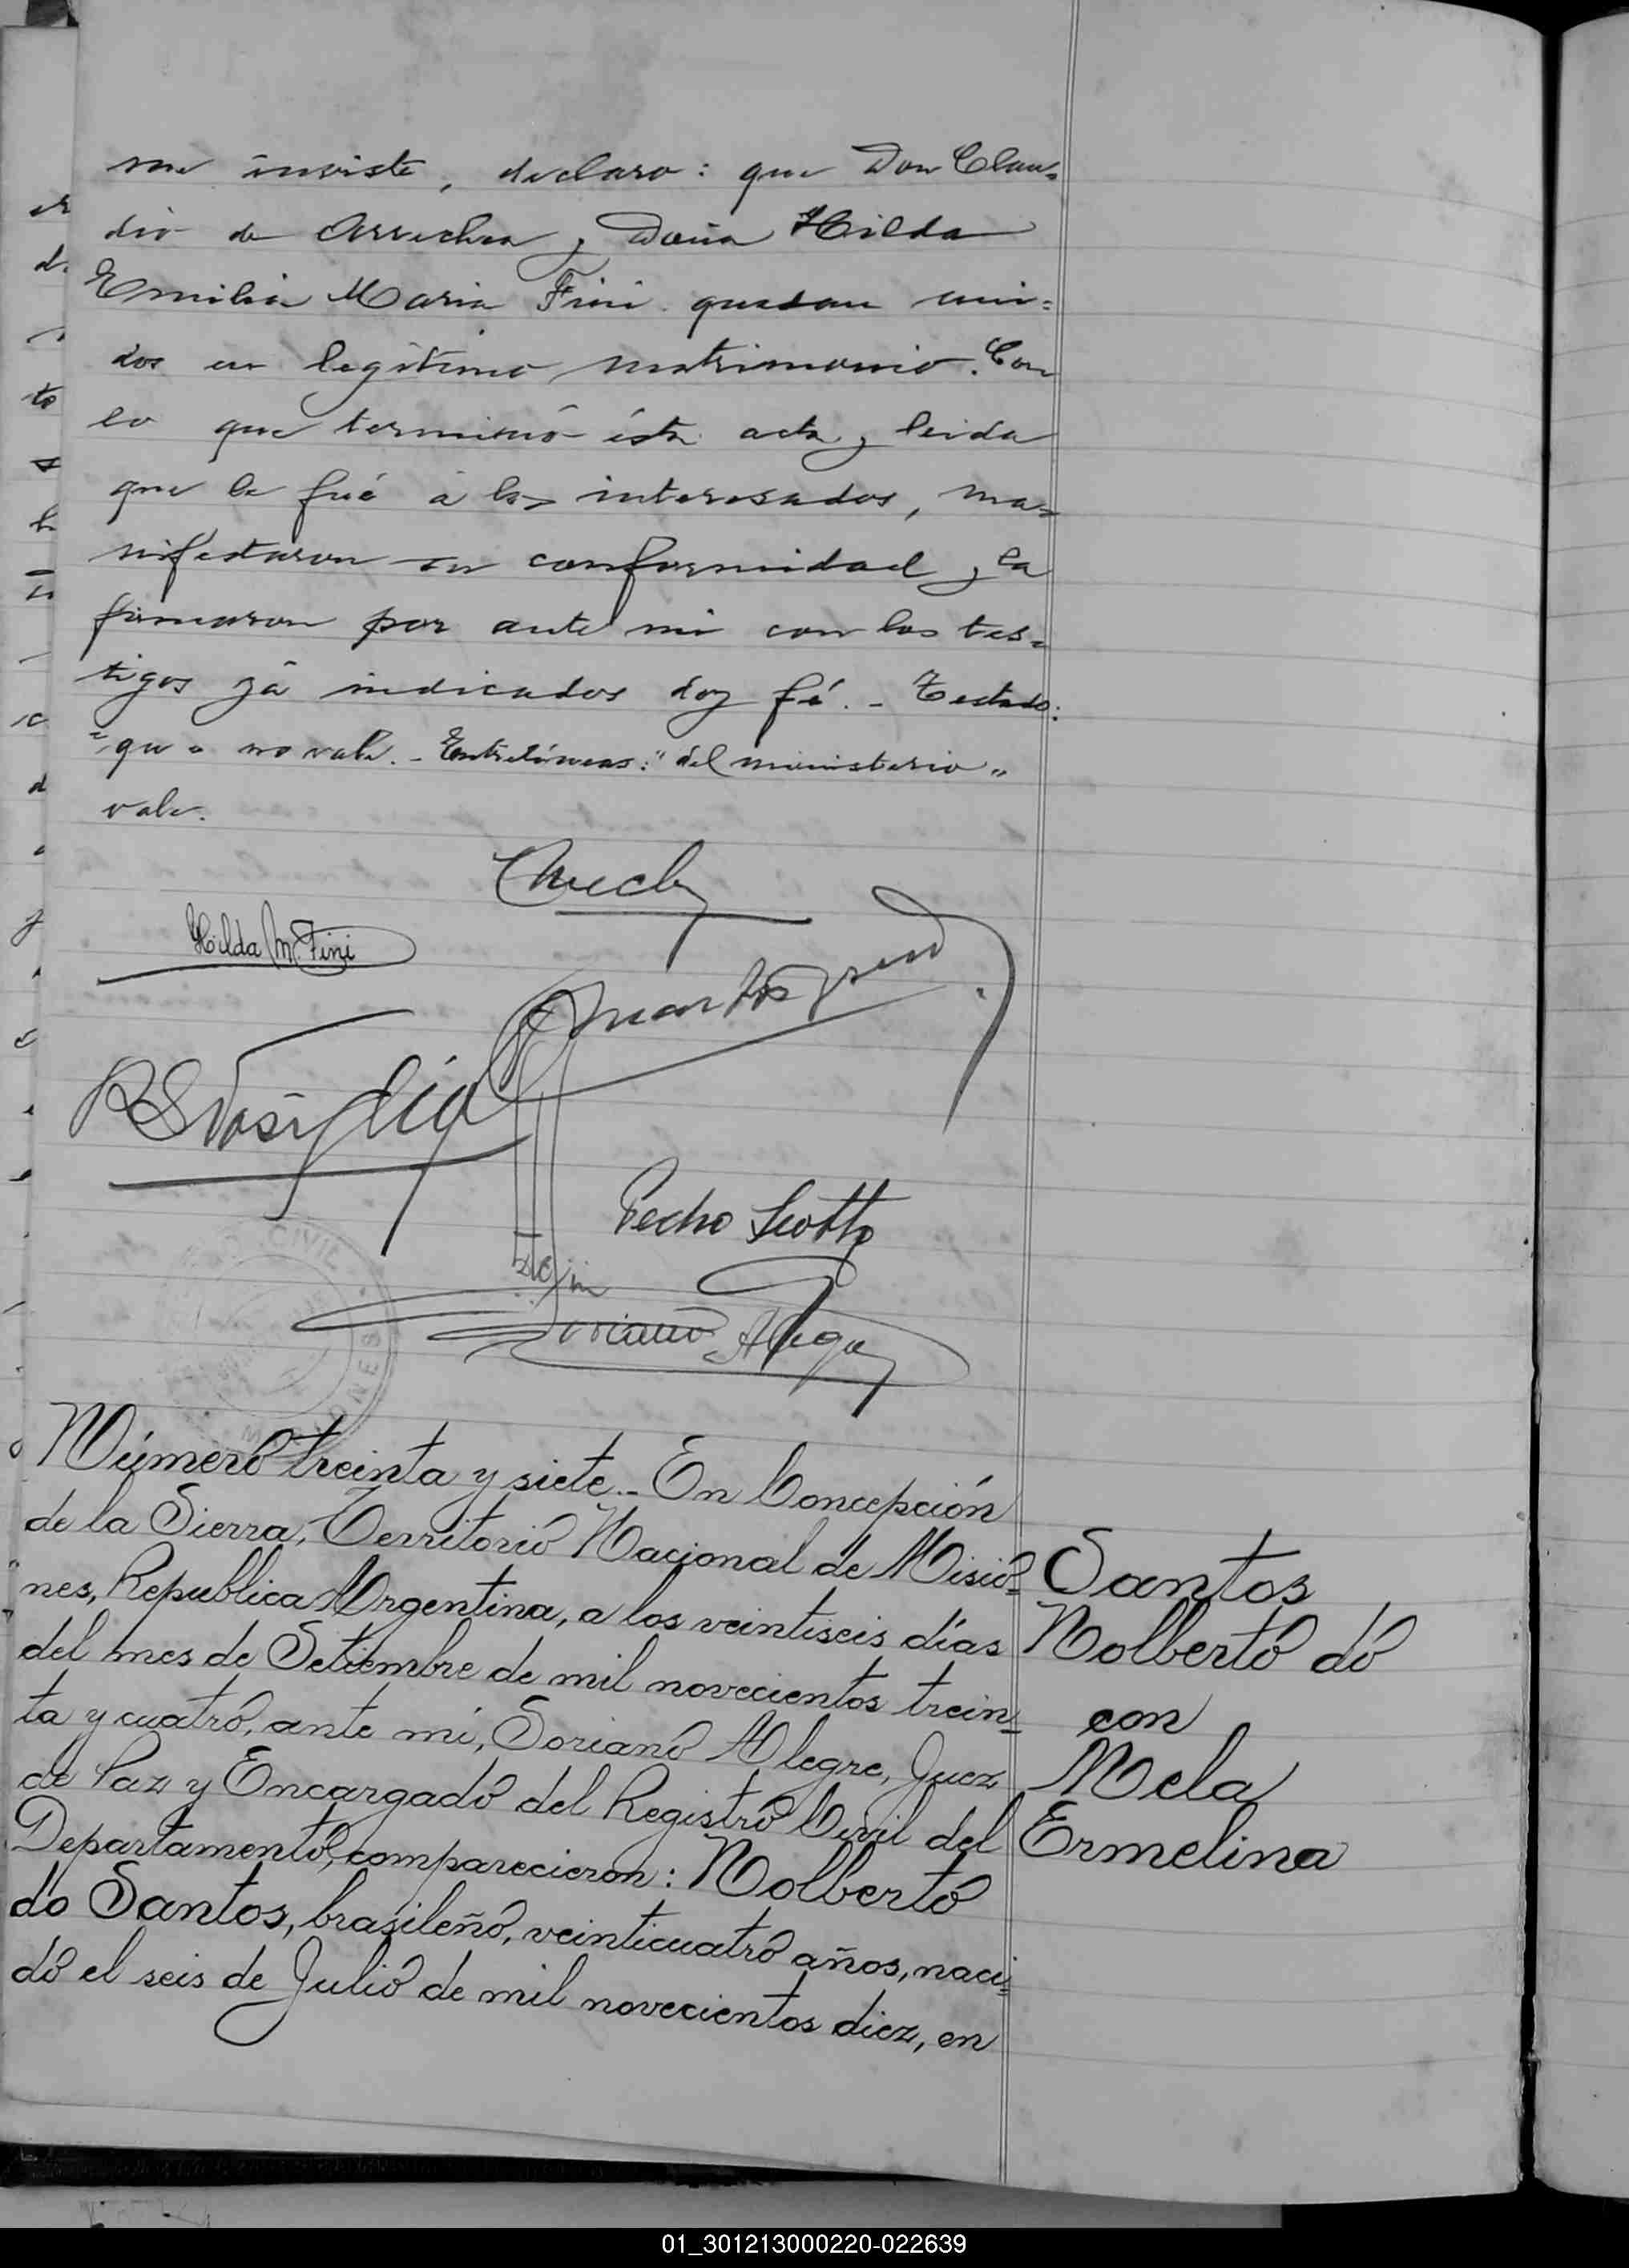 me inviste, declaro: que Don Clau=
dio de Arrechea y Doña Hilda
Emilia Maria Fini quedan uni=
dos en legítimo matrimonio. Con
lo que terminó ésta acta, y leida
que le fué á los interesados, ma=
nifestaron su conformidad y la
firmaron por ante mi con los tes=
tigos yá indicados doy fé. - Testado:
"que" no vale. - Entrelíneas: "del ministerio"
vale.
Hilda M. Fini
Pedro Scotto
Soriano Alegre
CIVIL
MISIONES
Número treinta y siete.- En Concepción
de la Sierra, Territorio Nacional de Misio=
nes, Republica Argentina, a los veintiseis días
del mes de Setiembre de mil novecientos trein=
ta y cuatro, ante mi, Soriano Alegre, Juez
de Paz y Encargado del Registro Civil del
Departamento, comparecieron: Nolberto
do Santos, brasileño, veinticuatro años, naci=
do el seis de Julio de mil novecientos diez, en
Santos
Nolberto do
con
Mela
Ermelina
01_301213000220-022639